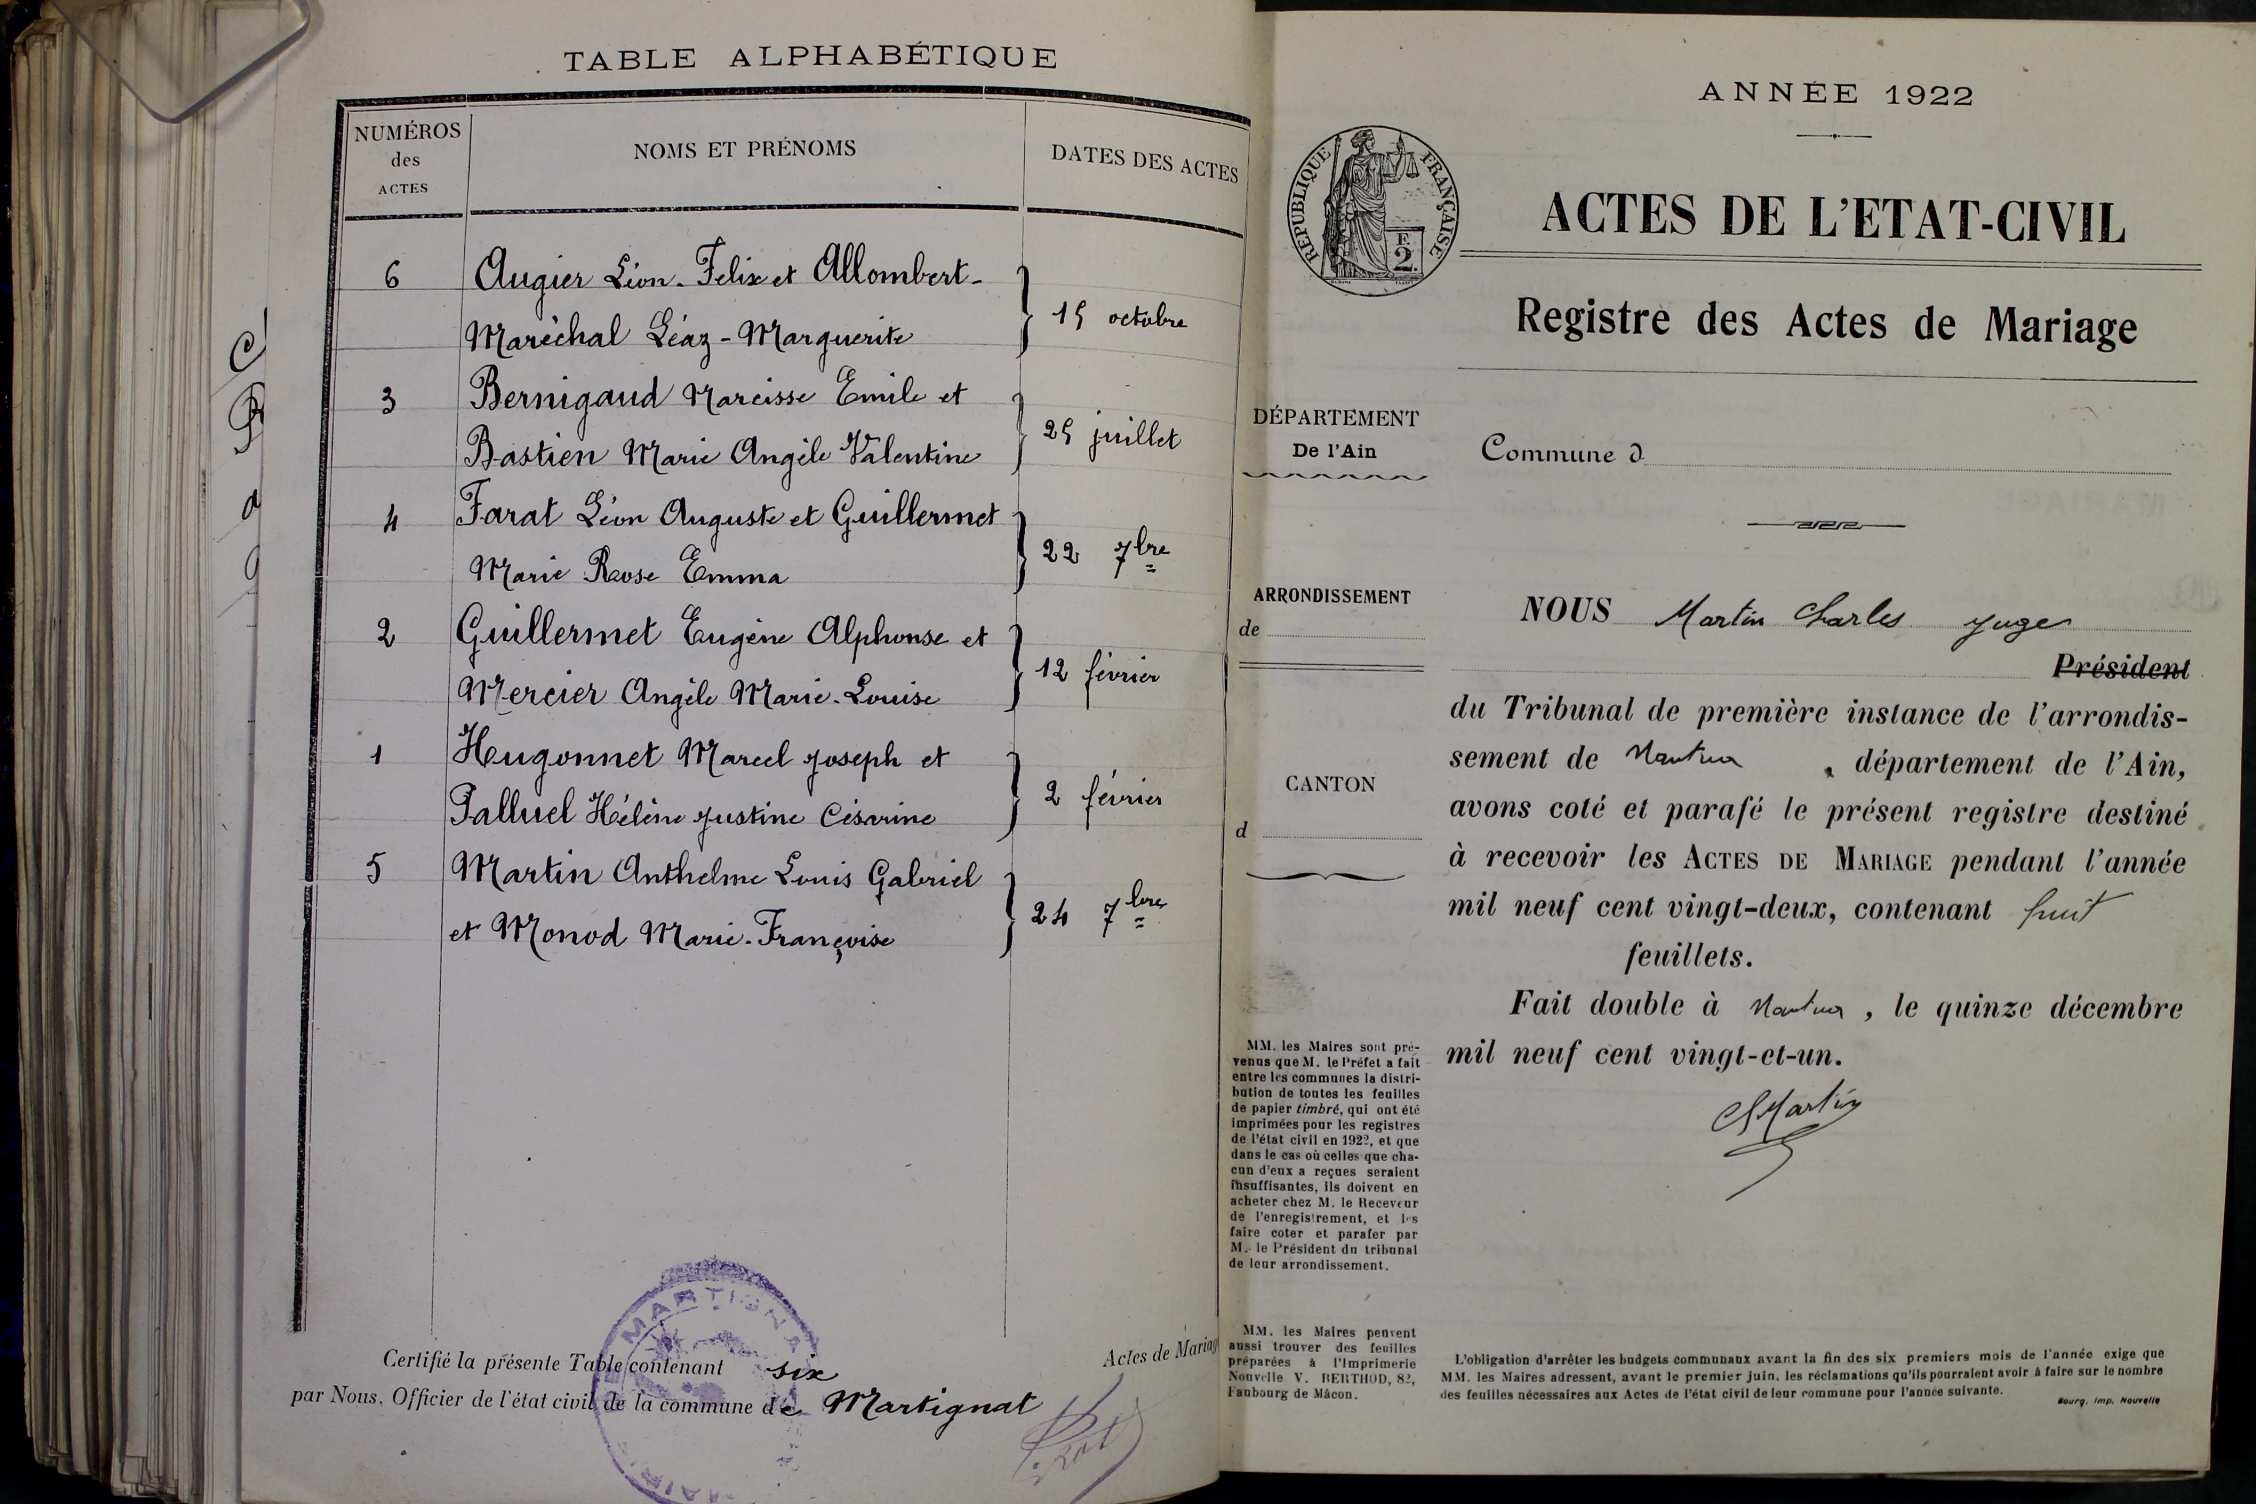 TABLE ALPHABÉTIQUE
NUMÉROS
des
ACTES
NOMS ET PRÉNOMS
DATES DES ACTES
6 Augier Léon-Felix et Allombert-
Maréchal Léaz-Marguerite
15 octobre
3 Bernigaud Narcisse Emile et
Bastien Marie Angèle Valentine
25 juillet
4 Farat Léon Auguste et Guillermet
Marie Rose Emma
22 7bre
2 Guillermet Eugène Alphonse et
Mercier Angèle Marie-Louise
12 février
1 Hugonnet Marcel Joseph et
Palluel Hélène Justine Césarine
2 février
5 Martin Anthelme Louis Gabriel
et Monod Marie-Françoise
24 7bre
Certifié la présente Table contenant six Actes de Mariage
par Nous, Officier de l'état civil de la commune de Martignat
MARTIGNA
MAIRI
ANNÉE 1922
RÉPUBLIQUE FRANÇAISE
F.
2
ACTES DE L'ETAT-CIVIL
Registre des Actes de Mariage
DÉPARTEMENT
De l'Ain
Commune d
ARRONDISSEMENT
de
CANTON
d
NOUS Martin Charles Juge
Président
du Tribunal de première instance de l'arrondis-
sement de Nantua, département de l'Ain,
avons coté et parafé le présent registre destiné
à recevoir les ACTES DE MARIAGE pendant l'année
mil neuf cent vingt-deux, contenant huit
feuillets.
Fait double à Nantua, le quinze décembre
mil neuf cent vingt-et-un.
ChMartin
MM. les Maires sont pré-
venus que M. le Préfet a fait
entre les communes la distri-
bution de toutes les feuilles
de papier timbré, qui ont été
imprimées pour les registres
de l'état civil en 1922, et que
dans le cas où celles que cha-
cun d'eux a reçues seraient
insuffisantes, ils doivent en
acheter chez M. le Receveur
de l'enregistrement, et les
faire coter et parafer par
M. le Président du tribunal
de leur arrondissement.
MM. les Maires peuvent
aussi trouver des feuilles
préparées à l'Imprimerie
Nouvelle V. BERTHOD, 82,
Faubourg de Mâcon.
L'obligation d'arrêter les budgets communaux avant la fin des six premiers mois de l'année exige que
MM. les Maires adressent, avant le premier juin, les réclamations qu'ils pourraient avoir à faire sur le nombre
des feuilles nécessaires aux Actes de l'état civil de leur commune pour l'année suivante.
Bourg, Imp. Nouvelle